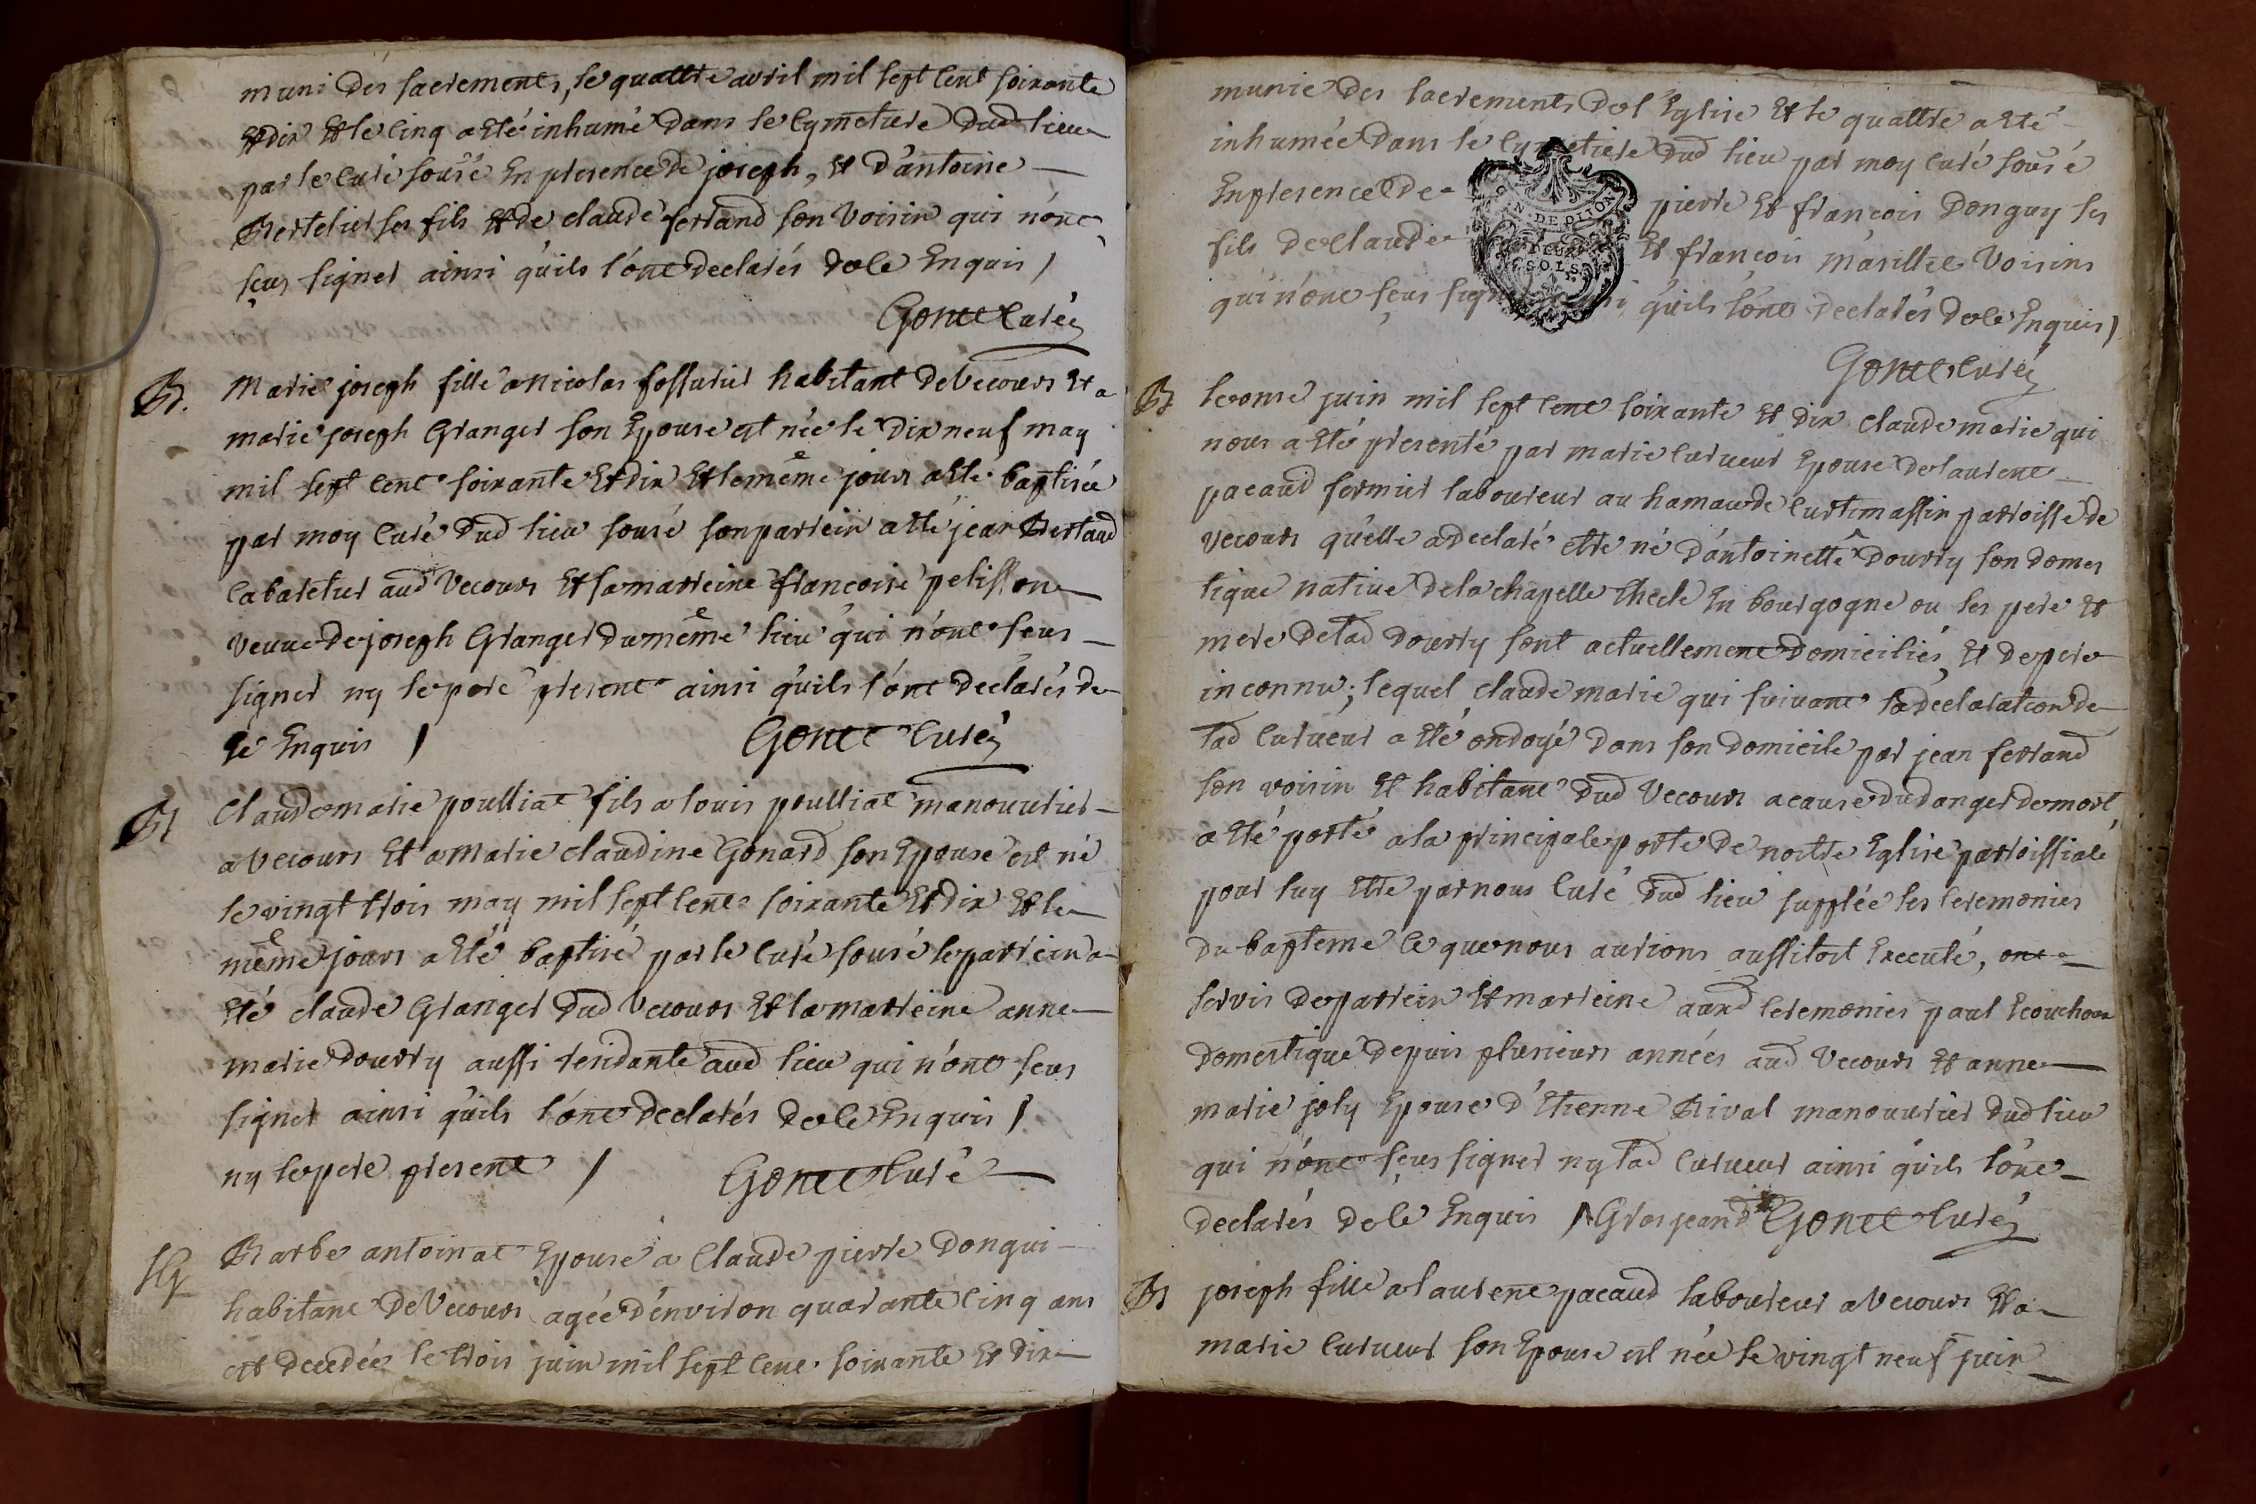 muni des sacrements, le quattre avril mil sept cent soixante
Et dix Et le cinq a Eté inhumé dans le cymetiere dud lieu
par le curé sousé En presence de joseph, Et d'antoine
Bertelier ses fils Et de claude ferrand son voisin qui n'ont
sçus signer ainsi qu'ils l'ont declarés de ce Enquis /
Gonet curé
B. Marie joseph fille a nicolas fossurier habitant de Vecours Et a
marie joseph Granger son Epouse est née le dix neuf may
mil sept cent soixante Et dix Et le même jours a Eté baptisée
par moy curé dud lieu sousé son parrein a Eté jean Bertaud
cabaretier aud Vecours Et sa marreine francoise pelisson
veuve de joseph Granger du même lieu qui n'ont sçus
signer ny le pere present ainsi qu'ils l'ont declarés de
ce Enquis / Gonet curé
B Claude marie poulliat fils a louis poulliat manouvrier
a Vecours Et a Marie claudine Gonard son Epouse est né
le vingt trois may mil sept cent soixante Et dix Et le
même jours a Eté baptisé par le curé sousé le parrein a
Eté claude Granger dud Vecours Et la marreine anne
marie dourry aussi residante aud lieu qui n'ont sçus
signer ainsi qu'ils l'ont declarés de ce Enquis /
ny le pere present / Gonet curé
Sep Barbe antoinat Epouse a Claude pierre donqui
habitant de Vecours agée d'environ quarante cinq ans
est decedée le trois juin mil sept cent soixante Et dix
munie des sacrements de l'Eglise Et le quattre a Eté
inhumée dans le cymetiere dud lieu par moy curé sousé
En presence de pierre Et francois donguy ses
fils de claude Et francois marillet voisins
qui n'ont sçus signer ainsi qu'ils l'ont declarés de ce Enquis /
G N. DE DIJON
DEUX
SOLS
Gonet curé
B le onze juin mil sept cent soixante Et dix claude marie qui
nous a Eté presenté par marie curveur Epouse de laurent
pacaud fermier laboureur au hamau de curtimassin parroisse de
vecours qu'elle a declaré etre né d'antoinette dourry son domes
tique native de la chapelle thecle En bourgogne ou ses pere Et
mere de lad dourry sont actuellement domiciliés, Et de pere
inconnu; lequel claude marie qui suivant la declaration de
lad curveur a Eté ondoyé dans son domicile par jean ferrand
son voisin Et habitant dud Vecours a cause du danger de mort,
a Eté porté a la principale porte de nostre Eglise parroissiale
pour luy Etre par nous curé dud lieu supplée les ceremonies
du bapteme ce que nous aurions aussitost Executé, ont
servis de parrein Et marreine auxd ceremonies paul Ecouchoux
domestique depuis plusieurs années aud Vecours Et anne
marie joly Epouse d'Etienne Rival manouvrier dud lieu
qui n'ont sçus signer ny lad curveur ainsi qu'ils l'ont
declarés de ce Enquis / Grosjeand Gonet curé
B joseph fille a laurent pacaud laboureur a Vecours Et a
marie curveur son Epouse est née le vingt neuf juin